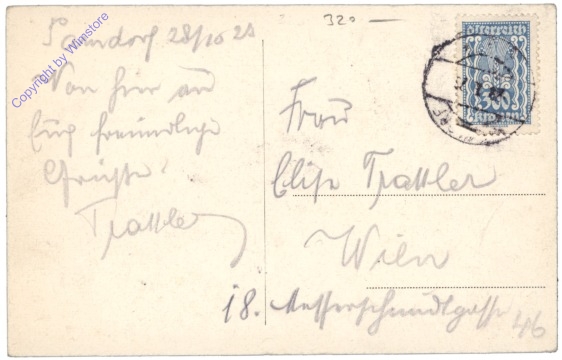 320 —
Parndorf 28/10 23
Von hier an
Euch freundliche
Grüsse
Trattler
Frau
Elise Trattler
Wien
18. Messerschmidtgasse
46
Österreich
500
Kronen
Copyright by Winstore